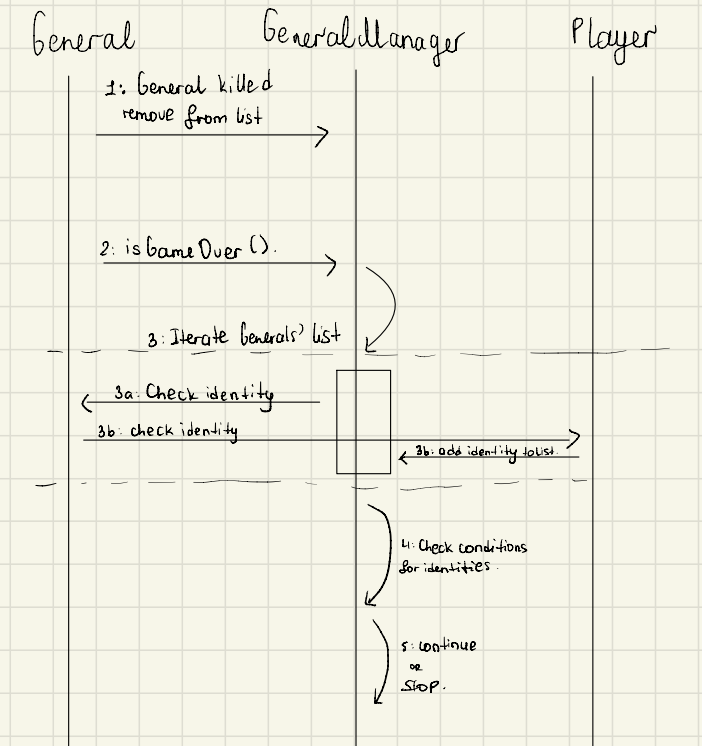 General
GeneralManager
Player
1: General killed
remove from list
2: isGameOver().
3: Iterate Generals' list
3a: Check identity
3b: check identity
3b: add identity to list.
4: Check conditions
for identities.
5: continue
OR
STOP.